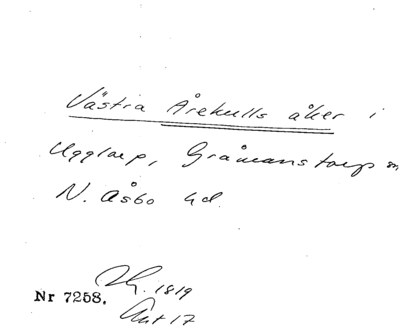 Västra Årekulls åker i
Ugglarp, Gråmanstorps sn
N. Åsbo hd.
Nr 7258.
1819
Ant 17